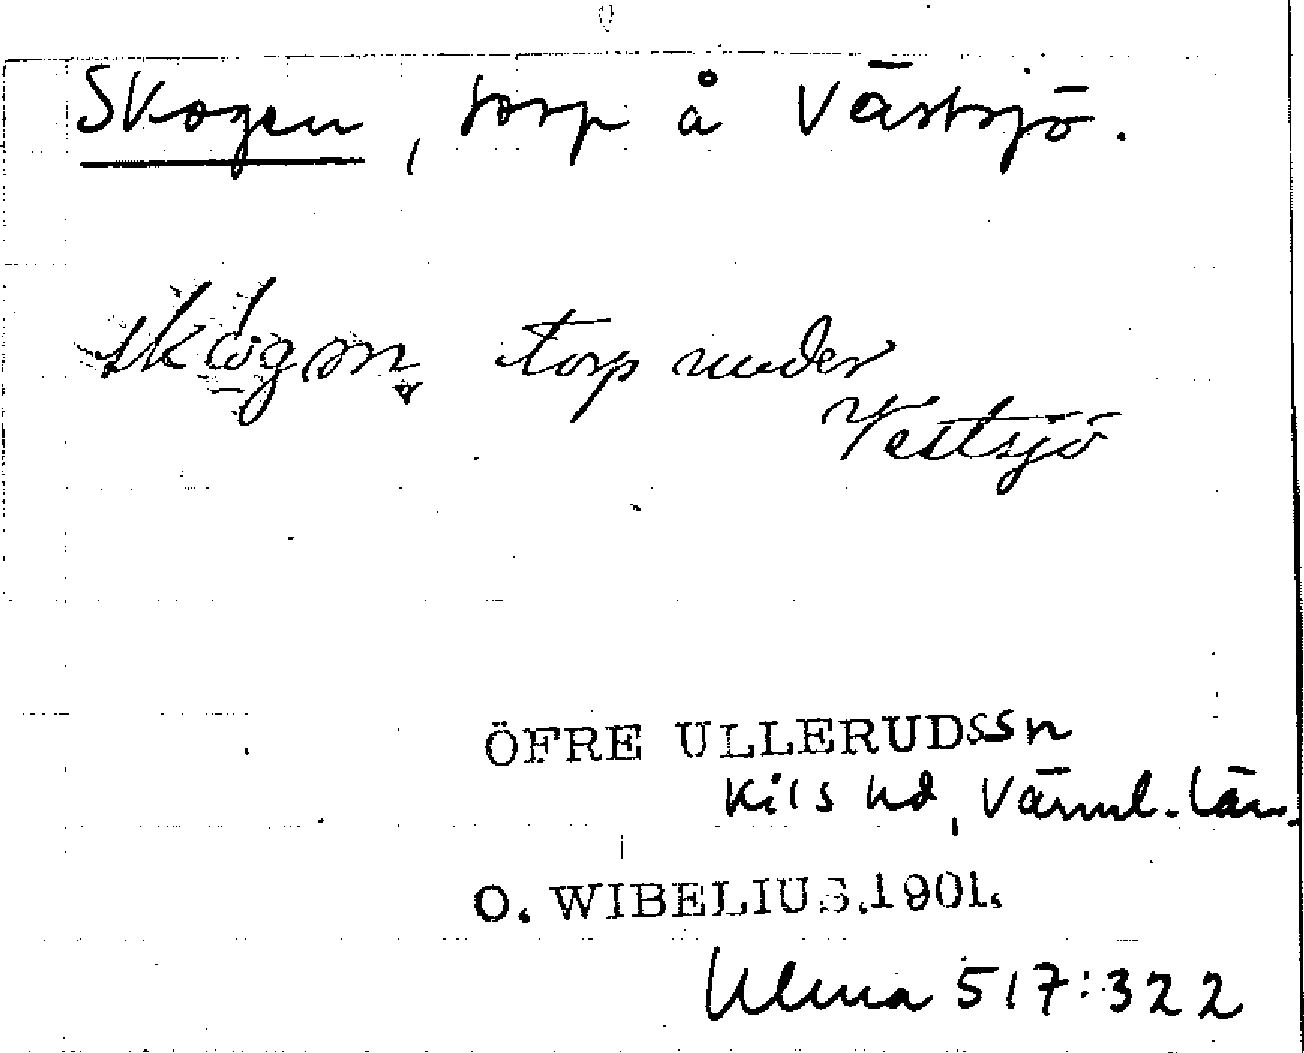 Skogen, torp å Västsjö.
torp under
Vestsjö
ÖFRE ULLERUDS sn
Kils hd, Värml. län.
O. WIBELIUS. 1901.
Ulma 517:322